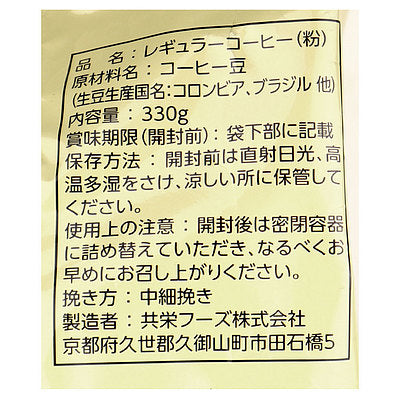 品 名：レギュラーコーヒー（粉）
原材料名：コーヒー豆
（生豆生産国名：コロンビア、ブラジル 他）
内容量：330g
賞味期限（開封前）：袋下部に記載
保存方法：開封前は直射日光、高
温多湿をさけ、涼しい所に保管して
ください。
使用上の注意：開封後は密閉容器
に詰め替えていただき、なるべくお
早めにお召し上がりください。
挽き方：中細挽き
製造者：共栄フーズ株式会社
京都府久世郡久御山町市田石橋5